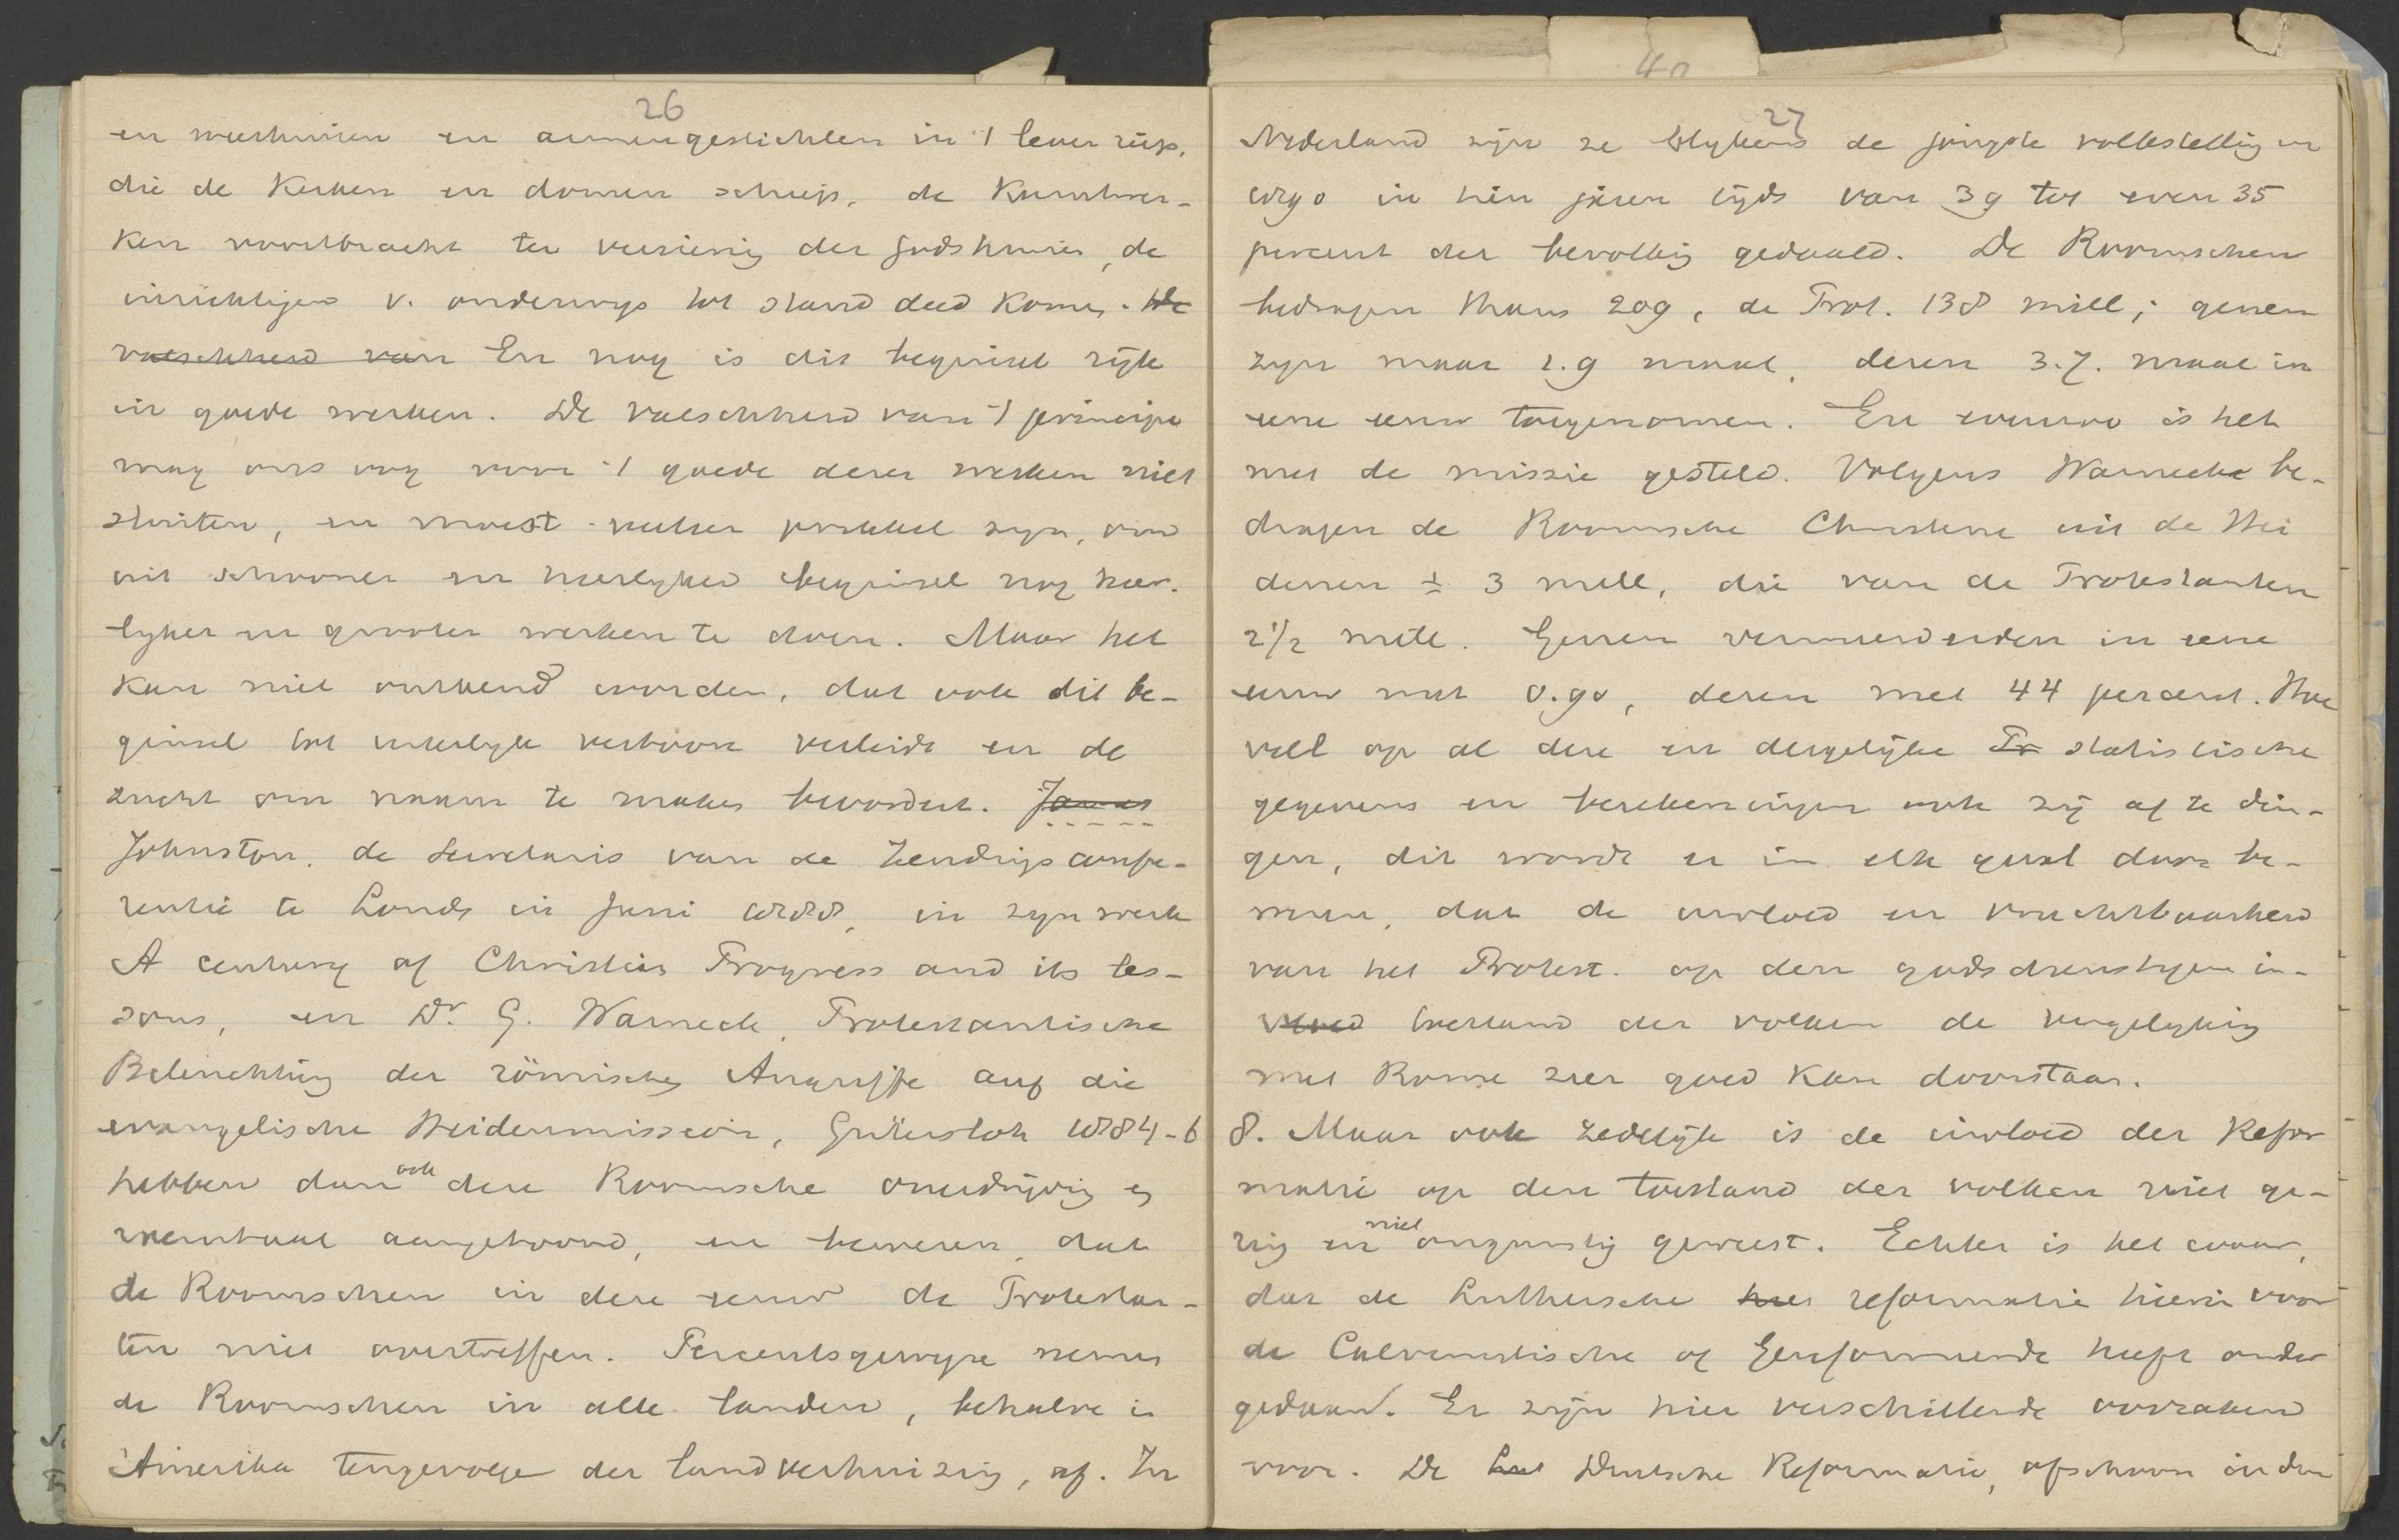 26
en weeshuizen en armengestichten in 't leven riep,
die de Kerken en domen schiep, de Kunstwer-
ken voortbracht ter versiering der godshuizen, de
inrichtigen v. onderwys tot stand deed komen. De
valschheid van En nog is dit beginsel rijk
in goede werken. De valschheid van 't principe
mag ons oog voor 't goede dezer werken niet
sluiten, en moest veeleer prikkel zyn, om
uit schooner en heerlyker beginsel nog heer-
lyker en grooter werken te doen. Maar het
kan niet ontkend worden, dat ook dit be-
ginsel tot uiterlyk vertoon verleidt en de
zucht om naam te maken bevordert. James
Johnston, de Secretaris van de Zendings confe-
rentie te Londen in Juni 1888, in zyn werk
A century of Christian Progress and its les-
sons, en Dr. G. Warneck, Protestantische
Beleuchtung der römischen Angriffe auf die
evangelische Heidenmission, Gütersloh 1884-6
hebben dan ook deze Roomsche overdrijving en
aangetoond, en bewezen, dat
de Roomschen in deze eeuw de Protestan-
ten niet overtreffen. Percentsgewyze nemen
de Roomschen in alle landen, behalve in
Amerika tengevolge der landverhuizing, af. In
27
Nederland zijn ze blykens de jongste volkstelling en
1890 in tien jaren tijds van 39 tot even 35
percent der bevolking gedaald. De Roomschen
bedragen thans 209, de Prot. 138 mill; genen
zyn maar 2.9 maal, dezen 3.7. maal in
eene eeuw toegenomen. En evenzoo is het
met de missie gesteld. Volgens Warneck be-
dragen de Roomsche Christenen uit de Hei
denen ± 3 mill, die van de Protestanten
2 1/2 mill. Genen vermeerderden in eene
eeuw met 0.90, dezen met 44 percent. Hoe
veel op al deze en dergelijke Pr statistische
gegevens en berekeningen ook zij af te din-
gen, dit wordt er in elk geval door be-
wezen, dat de invloed en vruchtbaarheid
van het Protest. op den godsdienstigen in-
vloed toestand der volken de vergelyking
met Rome zeer goed kan doorstaan.
8. Maar ook zedelijk is de invloed der Refor
matie op den toestand der volken niet ge-
ring en niet ongunstig geweest. Echter is het waar,
dat de Luthersche hier reformatie hierin voor
de Calvinistische of Gereformeerde heeft onder
gedaan. Er zijn hier verschillende oorzaken
voor. De Lut Duitsche Reformatie, ofschoon in den
40